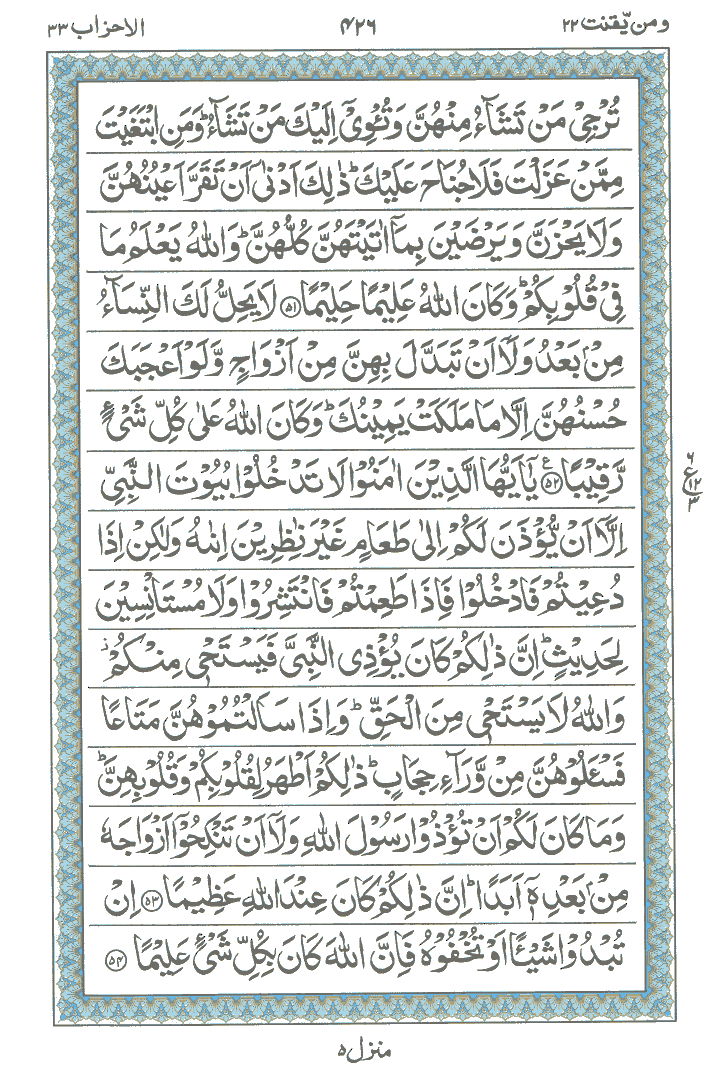 ومن يّقنت ۲۲ ۴۲۶ الاحزاب ۳۳
تُرْجِىْ مَنْ تَشَآءُ مِنْهُنَّ وَتُـْٔوِىْۤ اِلَيْكَ مَنْ تَشَآءُ ؕ وَمَنِ ابْتَغَيْتَ
مِمَّنْ عَزَلْتَ فَلَا جُنَاحَ عَلَيْكَ ؕ ذٰلِكَ اَدْنٰۤى اَنْ تَقَرَّ اَعْيُنُهُنَّ
وَلَا يَحْزَنَّ وَيَرْضَيْنَ بِمَاۤ اٰتَيْتَهُنَّ كُلُّهُنَّ ؕ وَاللّٰهُ يَعْلَمُ مَا
فِىْ قُلُوْبِكُمْ ؕ وَكَانَ اللّٰهُ عَلِيْمًا حَلِيْمًا ۵۱ لَا يَحِلُّ لَكَ النِّسَآءُ
مِنْۢ بَعْدُ وَلَاۤ اَنْ تَبَدَّلَ بِهِنَّ مِنْ اَزْوَاجٍ وَّلَوْ اَعْجَبَكَ
حُسْنُهُنَّ اِلَّا مَا مَلَكَتْ يَمِيْنُكَ ؕ وَكَانَ اللّٰهُ عَلٰى كُلِّ شَىْءٍ
رَّقِيْبًا ۵۲ ع يٰۤاَيُّهَا الَّذِيْنَ اٰمَنُوْا لَا تَدْخُلُوْا بُيُوْتَ النَّبِىِّ
۶ ع ۱۲ ۳
اِلَّاۤ اَنْ يُّؤْذَنَ لَكُمْ اِلٰى طَعَامٍ غَيْرَ نٰظِرِيْنَ اِنٰىهُ وَلٰكِنْ اِذَا
دُعِيْتُمْ فَادْخُلُوْا فَاِذَا طَعِمْتُمْ فَانْتَشِرُوْا وَلَا مُسْتَاْنِسِيْنَ
لِحَدِيْثٍ ؕ اِنَّ ذٰلِكُمْ كَانَ يُؤْذِى النَّبِىَّ فَيَسْتَحْىٖ مِنْكُمْ ز
وَاللّٰهُ لَا يَسْتَحْىٖ مِنَ الْحَقِّ ؕ وَاِذَا سَاَلْتُمُوْهُنَّ مَتَاعًا
فَسْـَٔلُوْهُنَّ مِنْ وَّرَآءِ حِجَابٍ ؕ ذٰلِكُمْ اَطْهَرُ لِقُلُوْبِكُمْ وَقُلُوْبِهِنَّ ؕ
وَمَا كَانَ لَكُمْ اَنْ تُؤْذُوْا رَسُوْلَ اللّٰهِ وَلَاۤ اَنْ تَنْكِحُوْۤا اَزْوَاجَهٗ
مِنْۢ بَعْدِهٖۤ اَبَدًا ؕ اِنَّ ذٰلِكُمْ كَانَ عِنْدَ اللّٰهِ عَظِيْمًا ۵۳ اِنْ
تُبْدُوْا شَيْـًٔا اَوْ تُخْفُوْهُ فَاِنَّ اللّٰهَ كَانَ بِكُلِّ شَىْءٍ عَلِيْمًا ۵۴
منزل ۵